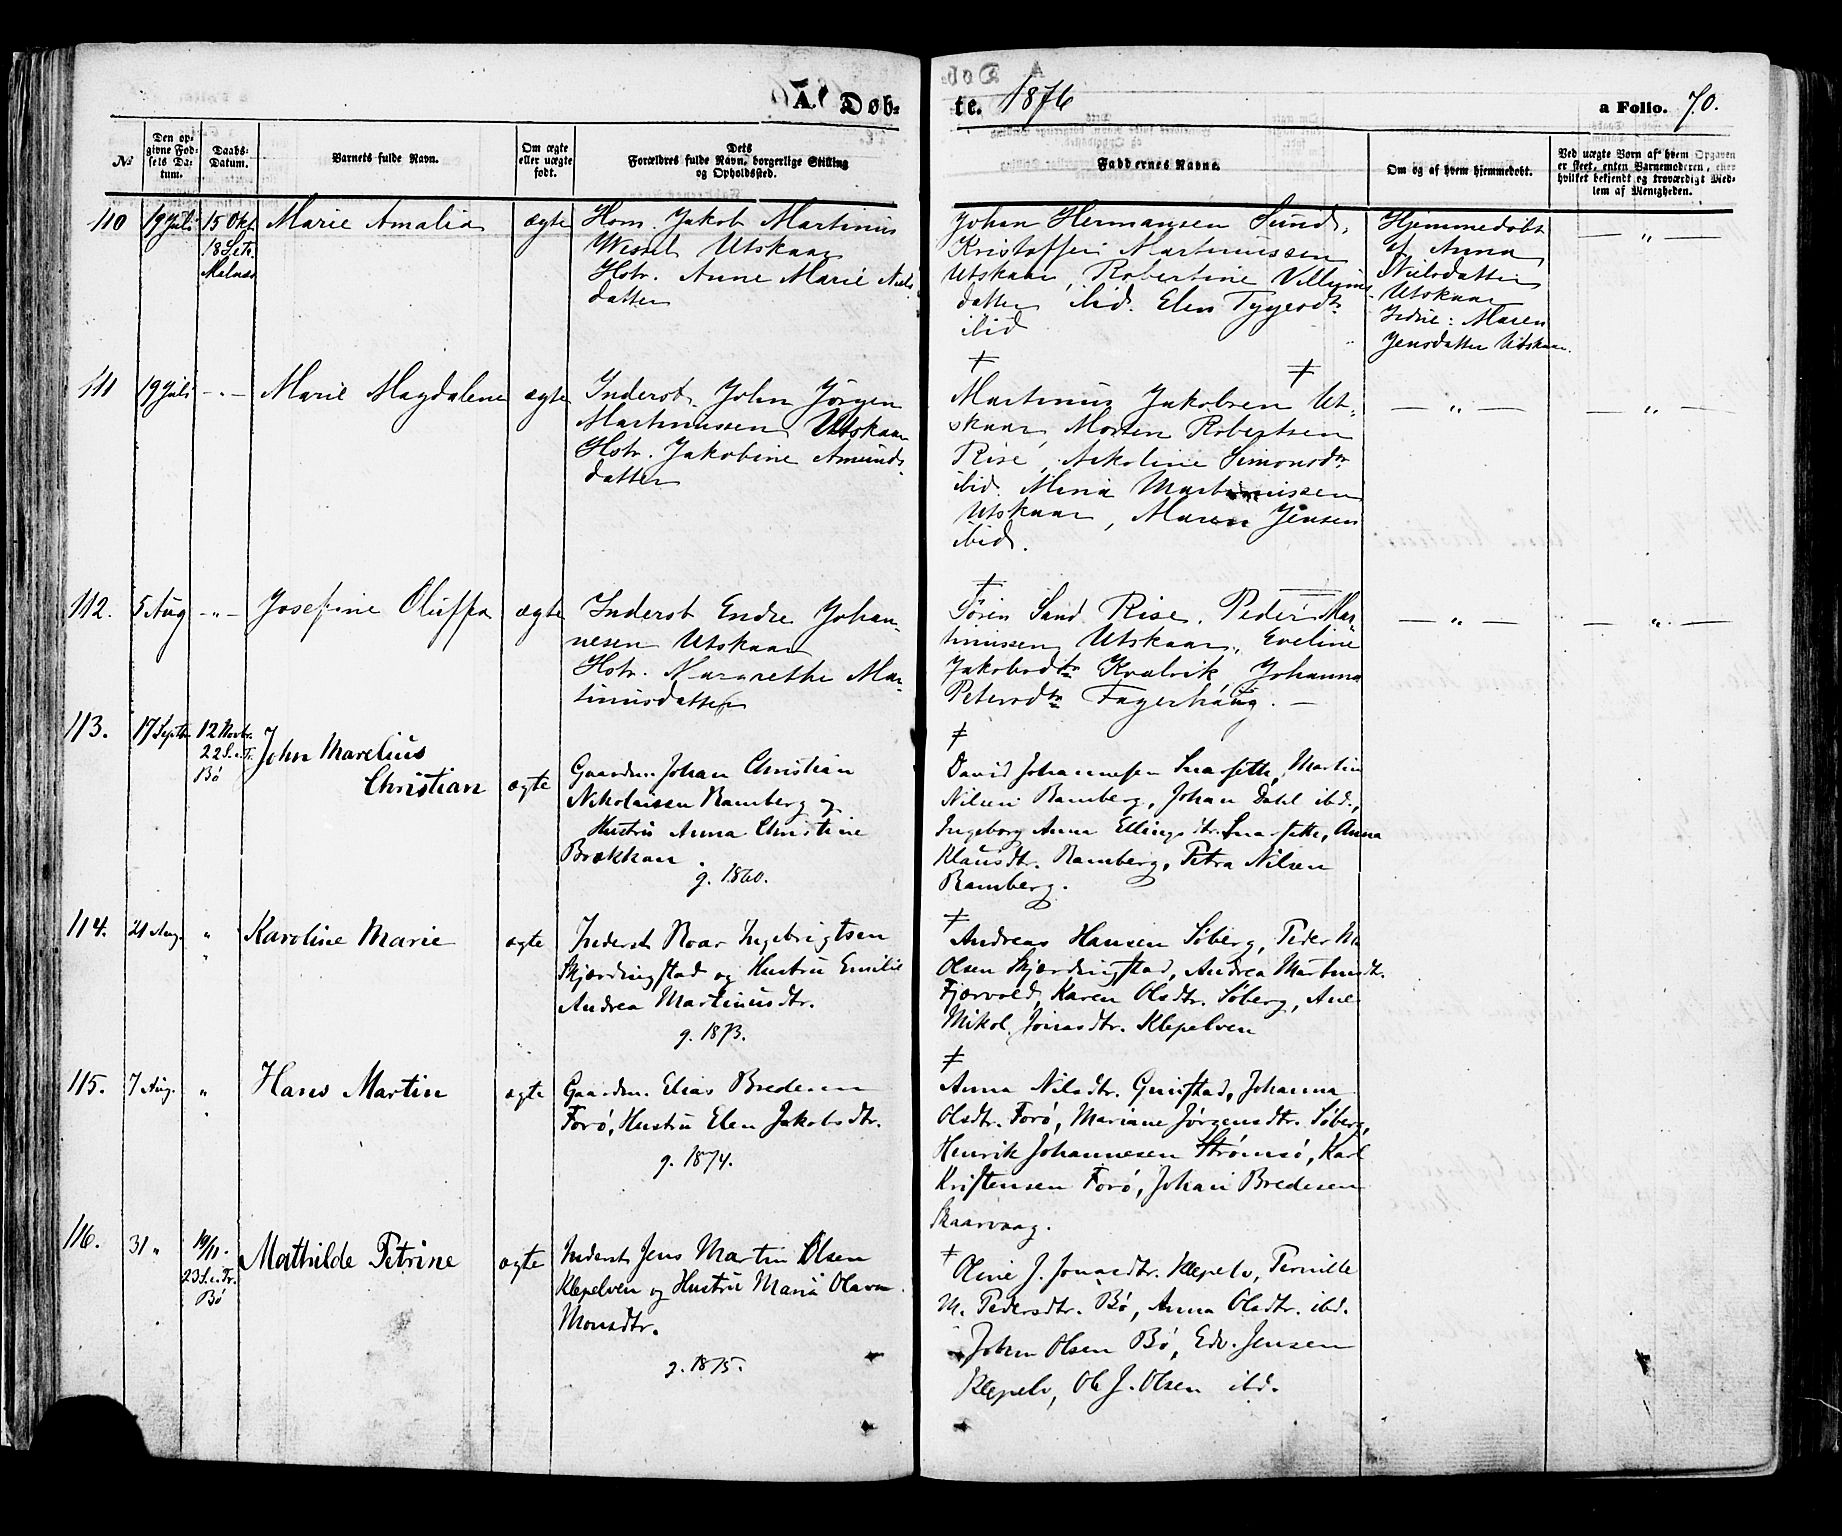 A. Døb-
te. 1876
a Folio. 70.
№
Den op-
givne Fød-
sels Da-
tum.
Daabs-
Datum.
Barnets fulde Navn.
Om ægte
eller uægte
født.
Dets
Forældres fulde Navn, borgerlige Stilling
og Opholdssted.
Faddernes Navne.
Om og af hvem hjemmedøbt.
Ved uægte Børn af hvem Opgaven
er skeet, enten Barnemoderen, eller
hvilket bekjendt og troværdigt Med-
lem af Menigheden.
110
19 Juli
15 Okt
18 S.e.Tr.
Melnæs
Marie Amalia
ægte
Hom. Jakob Martinus
Wessel Utskaar
Hstr. Anne Marie Niels
datter
Johan Hermansen Sund,
Kristoffer Martinussen
Utskaar, Robertine Villums
datter ibid. Elen Tygesdtr
ibid
Hjemmedøbt
af Anna
Nielsdatter
Utskaar
Maren
Jensdatter Utskaar.
— „ —
111
19 Juli
- „ -
Marie Magdalene
ægte
Inderst. John Jørgen
Martinussen Utskaar
Hstr. Jakobine Amunds
datter
Martinus Jakobsen Ut-
skaar, Morten Robertsen
Rise, Nikoline Simonsdtr
ibid. Mina Martinussen
Utskaar, Maren Jensen
ibid.
— „ —
— „ —
112.
5 Aug
- „ -
Josefine Oluffa
ægte
Inderst Endre Johan-
nesen Utskaar
Hstr. Margrethe Mar-
tinusdatter
Søren Sand Rise, Peder Mar-
tinussen Utskaar, Eveline
Jakobsdtr Kvalvik, Johanna
Petersdtr Fagerhaug. —
— „ —
— „ —
113.
17 Septbr.
12 Novbr.
22 S.e.Tr.
Bø
John Marelius
Christian
ægte
Gaardm. Johan Christian
Nikolaisen Ramberg og
Hustru Anna Christine
Brækkan.
g. 1860.
David Johannesen Snarseth, Martin
Nilsen Ramberg, Johan Dahl ibd.,
Ingeborg Anna Ellingsdtr. Snarseth, Anna
Klausdtr. Ramberg, Petra Nilsen
Ramberg.
114.
21 Aug.
„
Karoline Marie
ægte
Inderst Roar Ingebrigtsen
Skjærdingstad og Hustru Emilie
Andrea Martinusdtr.
g. 1873.
Andreas Hansen Søberg, Peder
Olsen Skjærdingstad, Andrea Martinsdtr.
Fjærvold, Karen Olsdtr. Søberg, Ane
Nikol. Jonasdtr. Klepelven
115.
7 Aug.
„
Hans Martin
ægte
Gaardm. Elias Bredesen
Forø, Hustru Elen Jakobsdtr.
g. 1874.
Anna Nilsdtr. Guustad, Johanna
Olsdtr. Forø, Mariane Jørgensdtr. Søberg,
Henrik Johannesen Strømsø, Karl
Kristensen Forø, Johan Bredesen
Skaarvaag.
116.
31 „
19/11.
23 S.e.Tr.
Bø
Mathilde Petrine
ægte
Inderst Jens Martin Olsen
Klepelven og Hustru Maria Olava
Monsdtr.
g. 1875.
Oline J. Jonasdtr. Klepelv, Pernille
M. Pedersdtr. Bø, Anna Olsdtr. ibd.
Johan Olsen Bø, Edv. Jensen
Klepelv, Ole J. Olsen ibd.